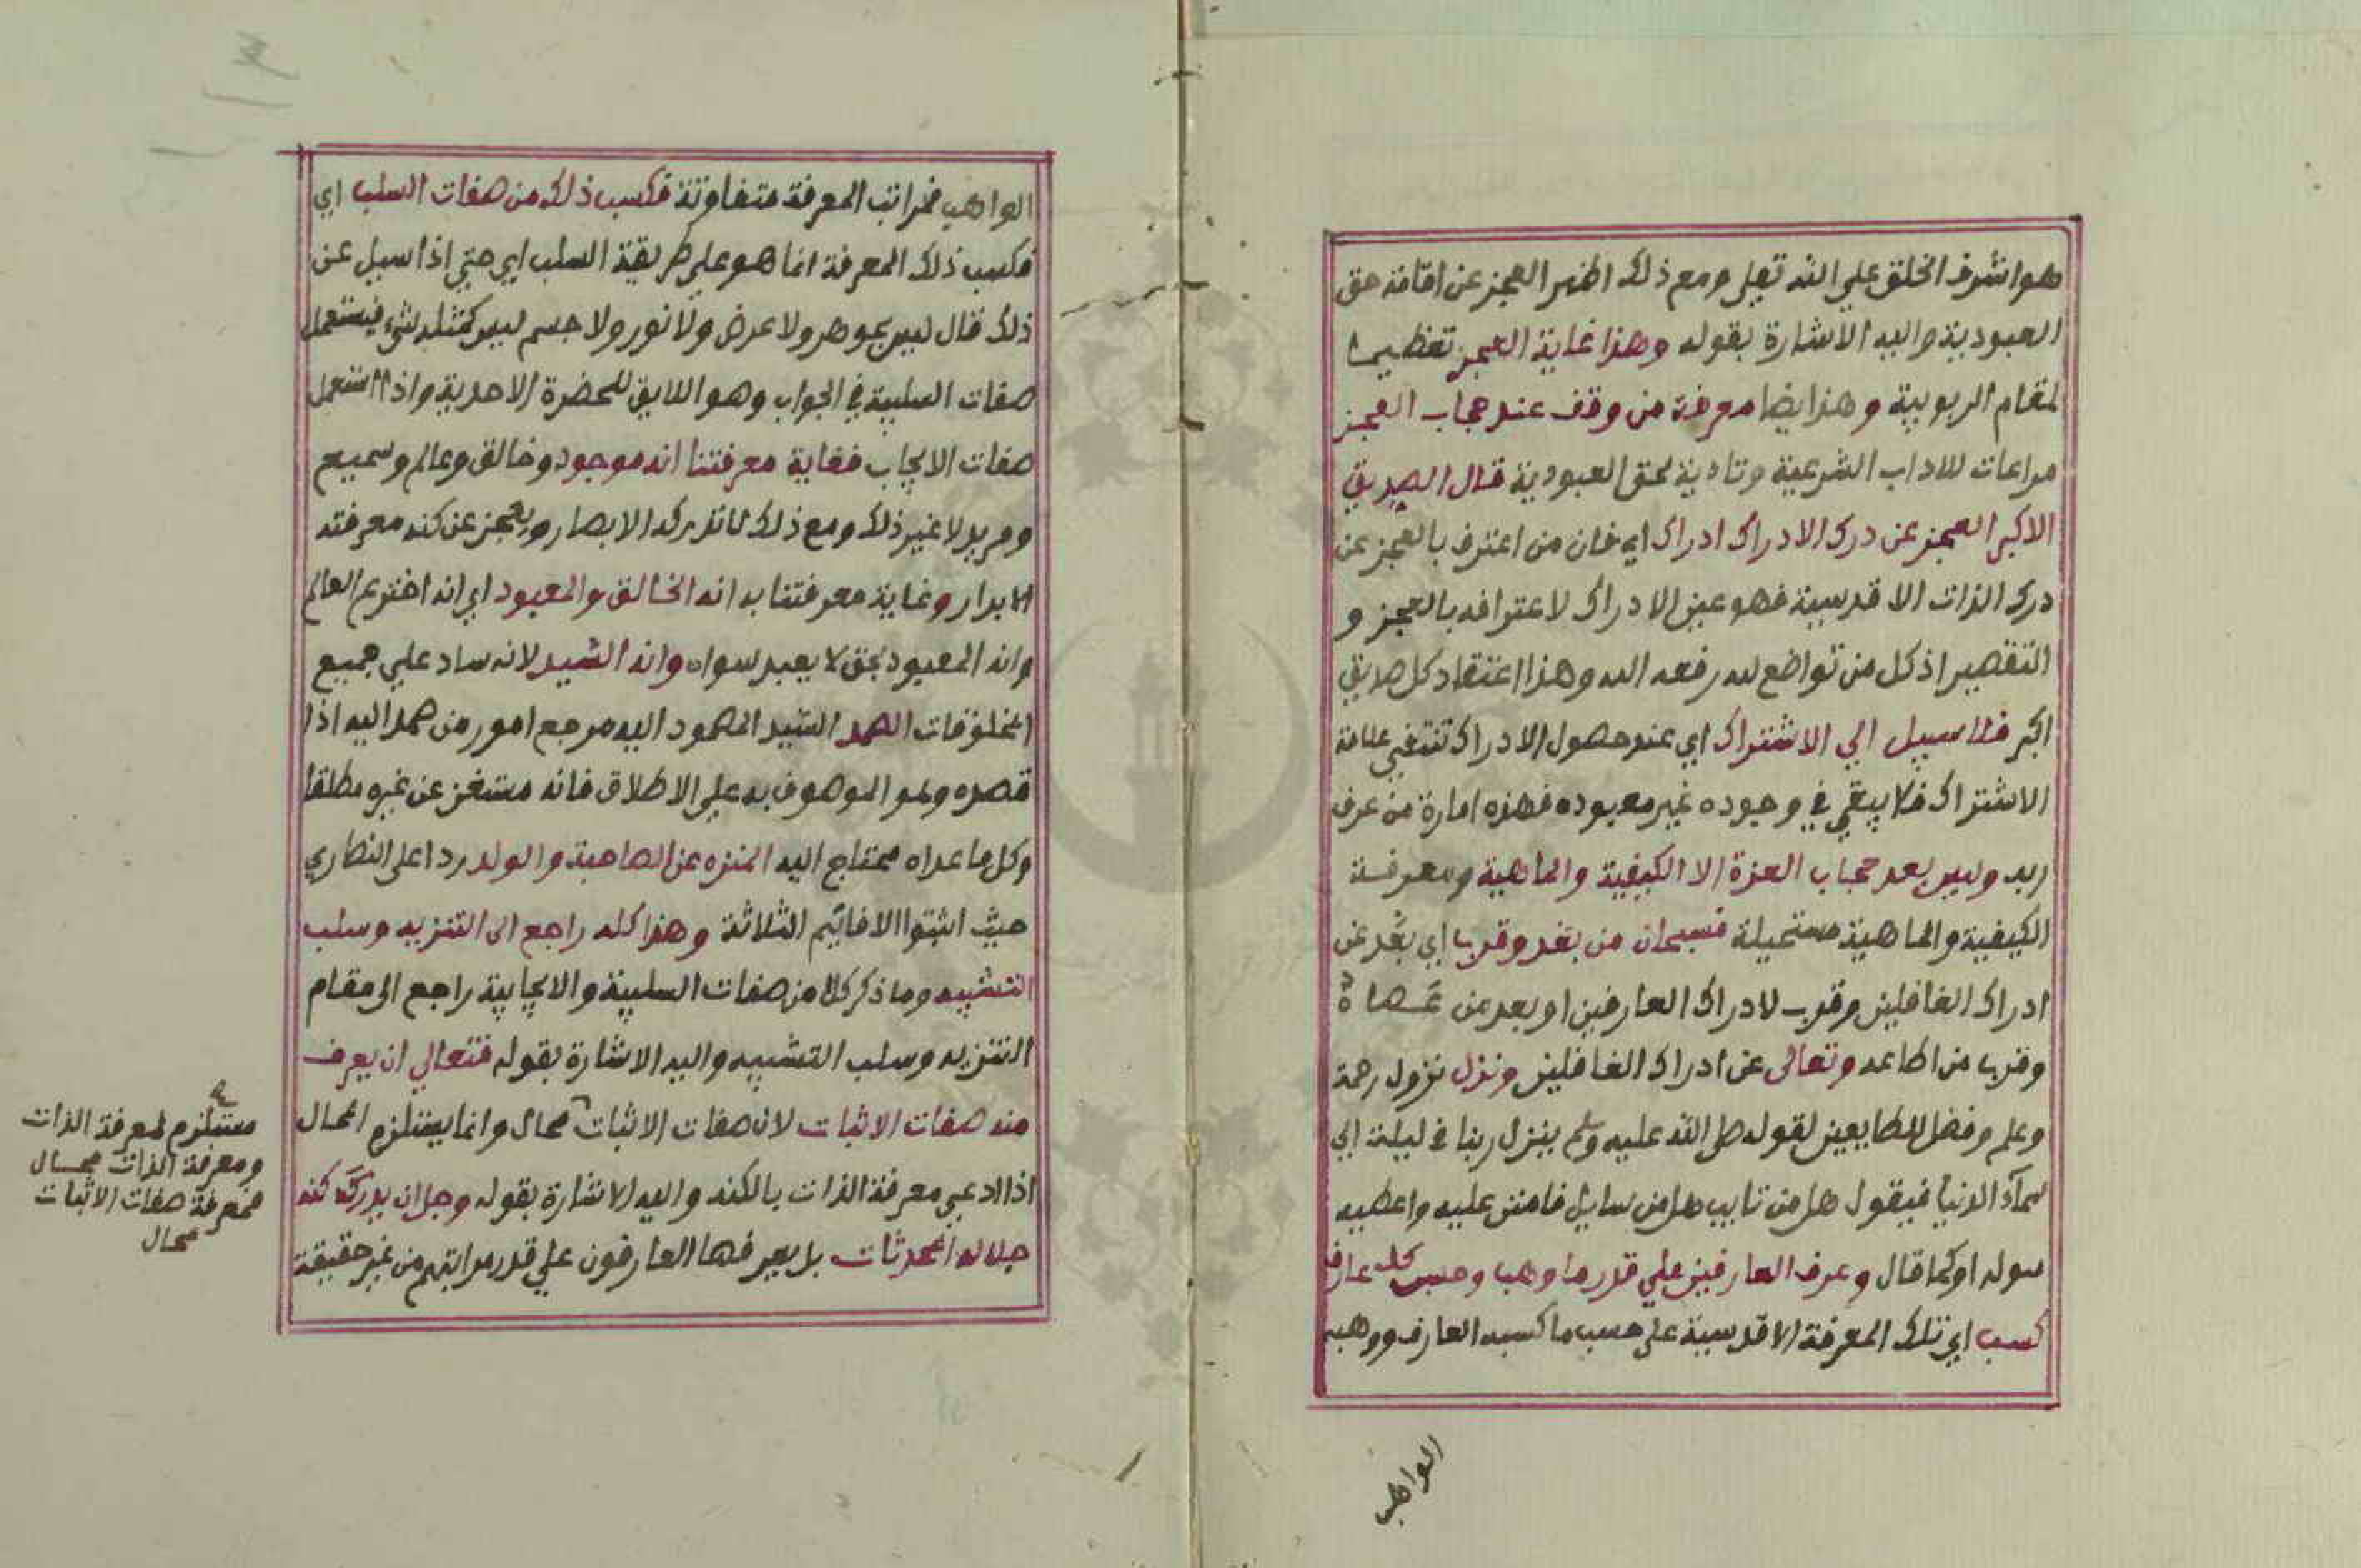 هو اشرف الخلق علي الله تعلي ومع ذلك اظهر العجز عن اقامة حق
العبودية واليه الاشارة بقوله وهذا غاية العجز تعظيما
لمقام الربوبية وهذا ايضا معرفة من وقف عند حجاب العجز
مراعات للاداب الشرعية وتادية لحق العبودية قال الصديق
الاكبر العجز عن درك الادراك ادراك اي فان من اعترف بالعجز عن
درك الذات الاقدسية فهو عين الادراك لاعترافه بالعجز و
التقصير اذ كل من تواضع لله رفعه الله وهذا اعتقاد كل صديق
اكبر فلا سبيل الي الاشتراك اي عند حصول الادراك تنتفي علامة
الاشتراك فلا يبقي في وجوده غير معبوده فهذه امارة من عرف
ربه وليس بعد حجاب العزة الا الكيفية والماهية ومعرفة
الكيفية والماهية مستحيلة فسبحان من بعد وقرب اي بعد عن
ادراك الغافلين وقرب لادراك العارفين او بعد من عصاة
وقرب من اطاعه وتعالى عن ادراك الغافلين ونزل نزول رحمة
وعلم وفضل للطايعين لقوله صل الله عليه وسلم ينزل ربنا في ليلة الي
سمآء الدنيا فيقول هل من تايب هل من سايل فامنن عليه واعطيه
سوله او كما قال وعرف العارفين علي قدر ما وهب وحسب كل عارف
كسب اي تلك المعرفة الاقدسية على حسب ما كسبه العارف ووهبه
الواهب
الواهب فمراتب المعرفة متفاوتة فكسب ذلك من صفات السلب اي
فكسب ذلك المعرفة انما هو علي طريقة السلب اي حتي اذا سيل عن
ذلك قال ليس بجوهر ولا عرض ولا نور ولا جسم ليس كمثله شيء فيستعمل
صفات السلبية في الجواب وهو اللايق للحضرة الاحدية واذا استعمل
صفات الايجاب فغاية معرفتنا انه موجود وخالق وعالم وسميع
ومريد لا غير ذلك ومع ذلك لا تدركه الابصار ويعجز عن كنه معرفته
الابرار وغاية معرفتنا به انه الخالق والمعبود اي انه اخترع العالم
وانه المعبود بحق لا يعبد سواه وانه السيد لانه ساد علي جميع
المخلوقات الصمد السيد المصمود اليه مرجع امور من صمد اليه اذا
قصده وهو الموصوف به علي الاطلاق فانه مستغن عن غيره مطلقا
وكل ما عداه محتاج اليه المنزه عن الصاحبة والولد ردا على النصاري
حيث اثبتوا الاقانيم الثلاثة وهذا كله راجع الى التنزيه وسلب
التشبيه وما ذكر كلا من صفات السلبية والايجابية راجع الى مقام
التنزيه وسلب التشبيه واليه الاشارة بقوله فتعالي ان يعرف
منه صفات الاثبات لان صفات الاثبات محال وانما يستلزم المحال
اذا ادعي معرفة الذات بالكنه واليه الاشارة بقوله وجل ان يدرك كنه
جلاله المحدثات بل يعرفها العارفون علي قدر مراتبهم من غير حقيقة
مستلزم لمعرفة الذات
ومعرفة الذات محال
فمعرفة صفات الاثبات
محال